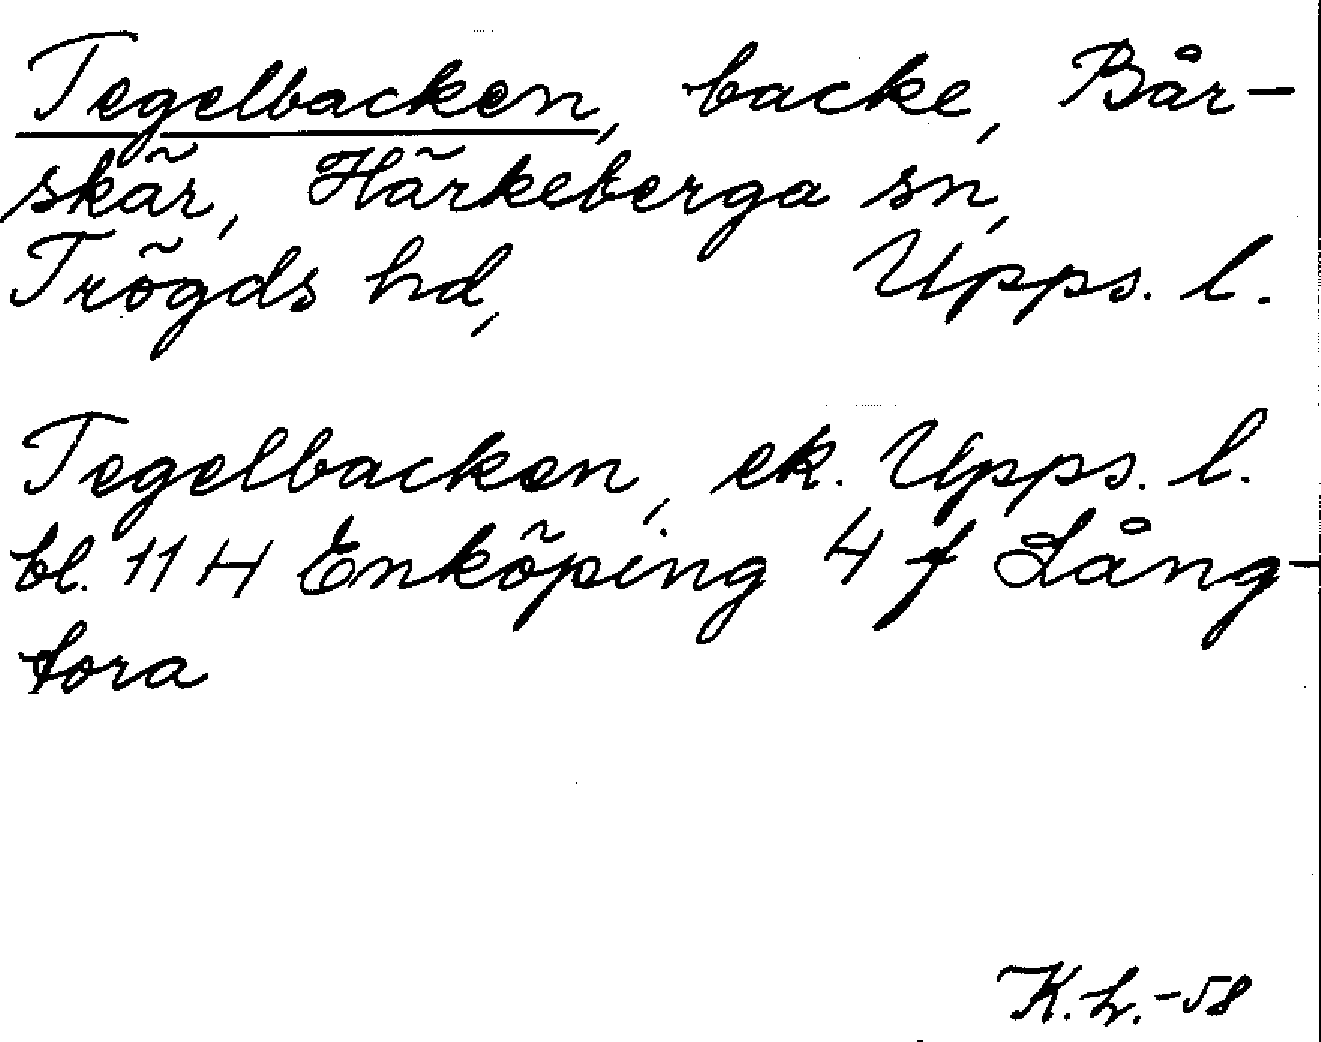 Tegelbacken, backe, Bår-
skär, Härkeberga sn,
Trögds hd, Upps. l.
Tegelbacken, ek. Upps. l.
bl. 114 Enköping 4 f Lång-
tora
K.h.-58